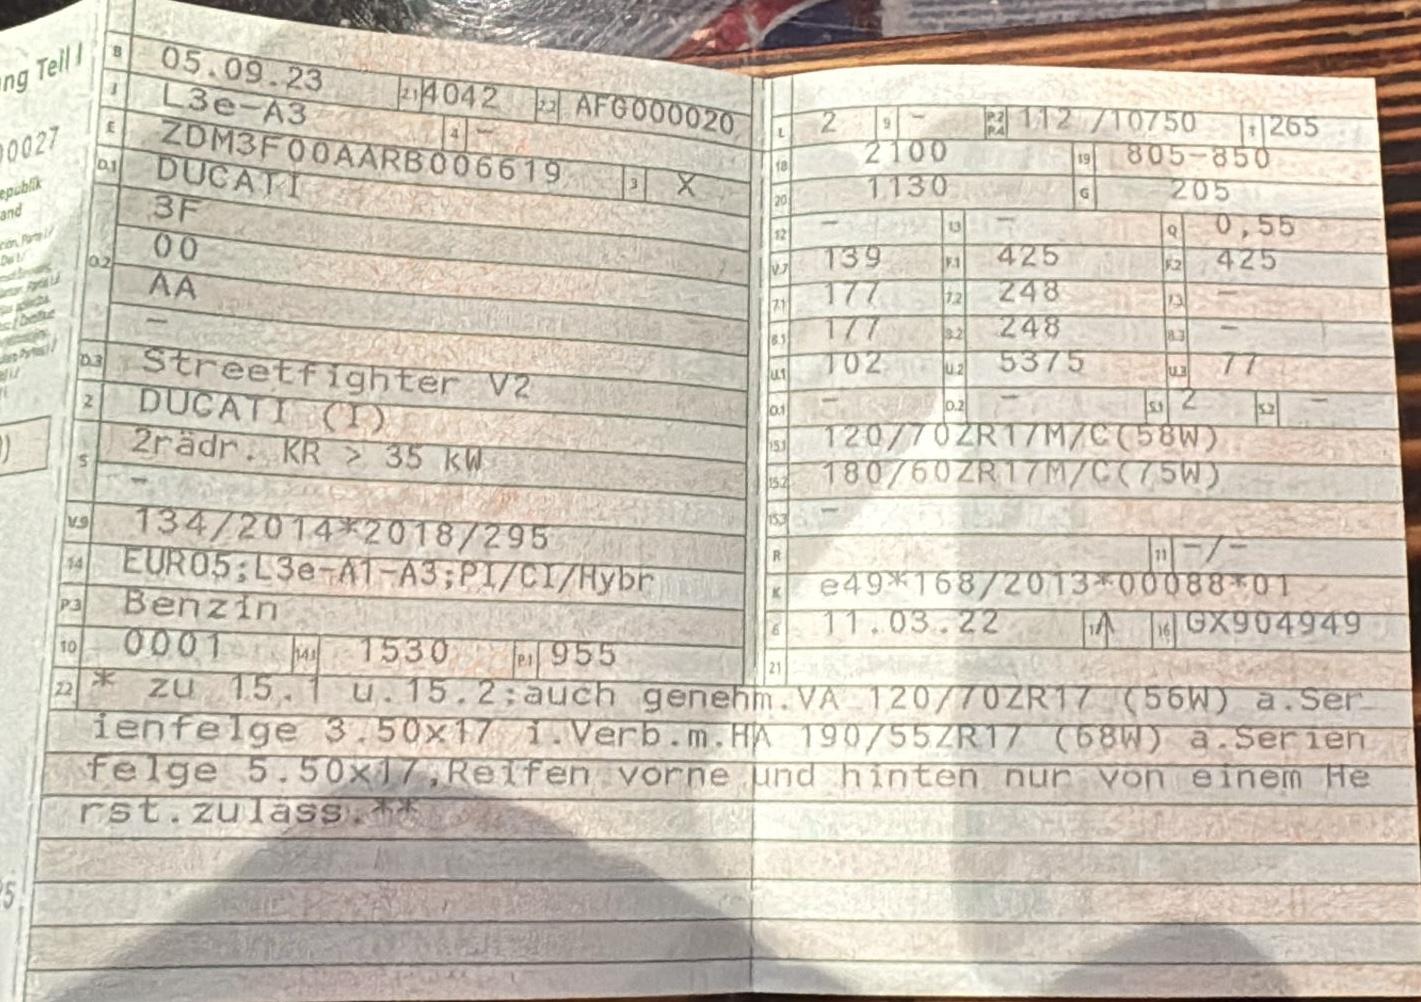 ng Teil I
0027
epublik
and
B 05.09.23 2.1 4042 2.2 AFG000020
J L3e-A3 4 -
E ZDM3F00AARB006619 3 X
D.1 DUCATI
D.2 3F
00
AA
-
D.3 Streetfighter V2
2 DUCATI (I)
5 2rädr. KR > 35 kW
-
V.9 134/2014*2018/295
14 EURO5;L3e-A1-A3;PI/CI/Hybr
P.3 Benzin
10 0001 14.1 1530 P.1 955
L 2 9 - P.2 P.4 112 /10750 T 265
18 2100 19 805-850
20 1130 G 205
12 - 13 - Q 0,55
V.7 139 F.1 425 F.2 425
7.1 177 7.2 248 7.3 -
8.1 177 8.2 248 8.3 -
U.1 102 U.2 5375 U.3 77
O.1 - O.2 - S.1 2 S.2 -
15.1 120/70ZR17M/C(58W)
15.2 180/60ZR17M/C(75W)
15.3 -
R 11 -/-
K e49*168/2013*00088*01
6 11.03.22 17 A 16 GX904949
21
22 * zu 15.1 u.15.2;auch genehm.VA 120/70ZR17 (56W) a.Ser
ienfelge 3.50x17 i.Verb.m.HA 190/55ZR17 (68W) a.Serien
felge 5.50x17,Reifen vorne und hinten nur von einem He
rst.zuläss.**